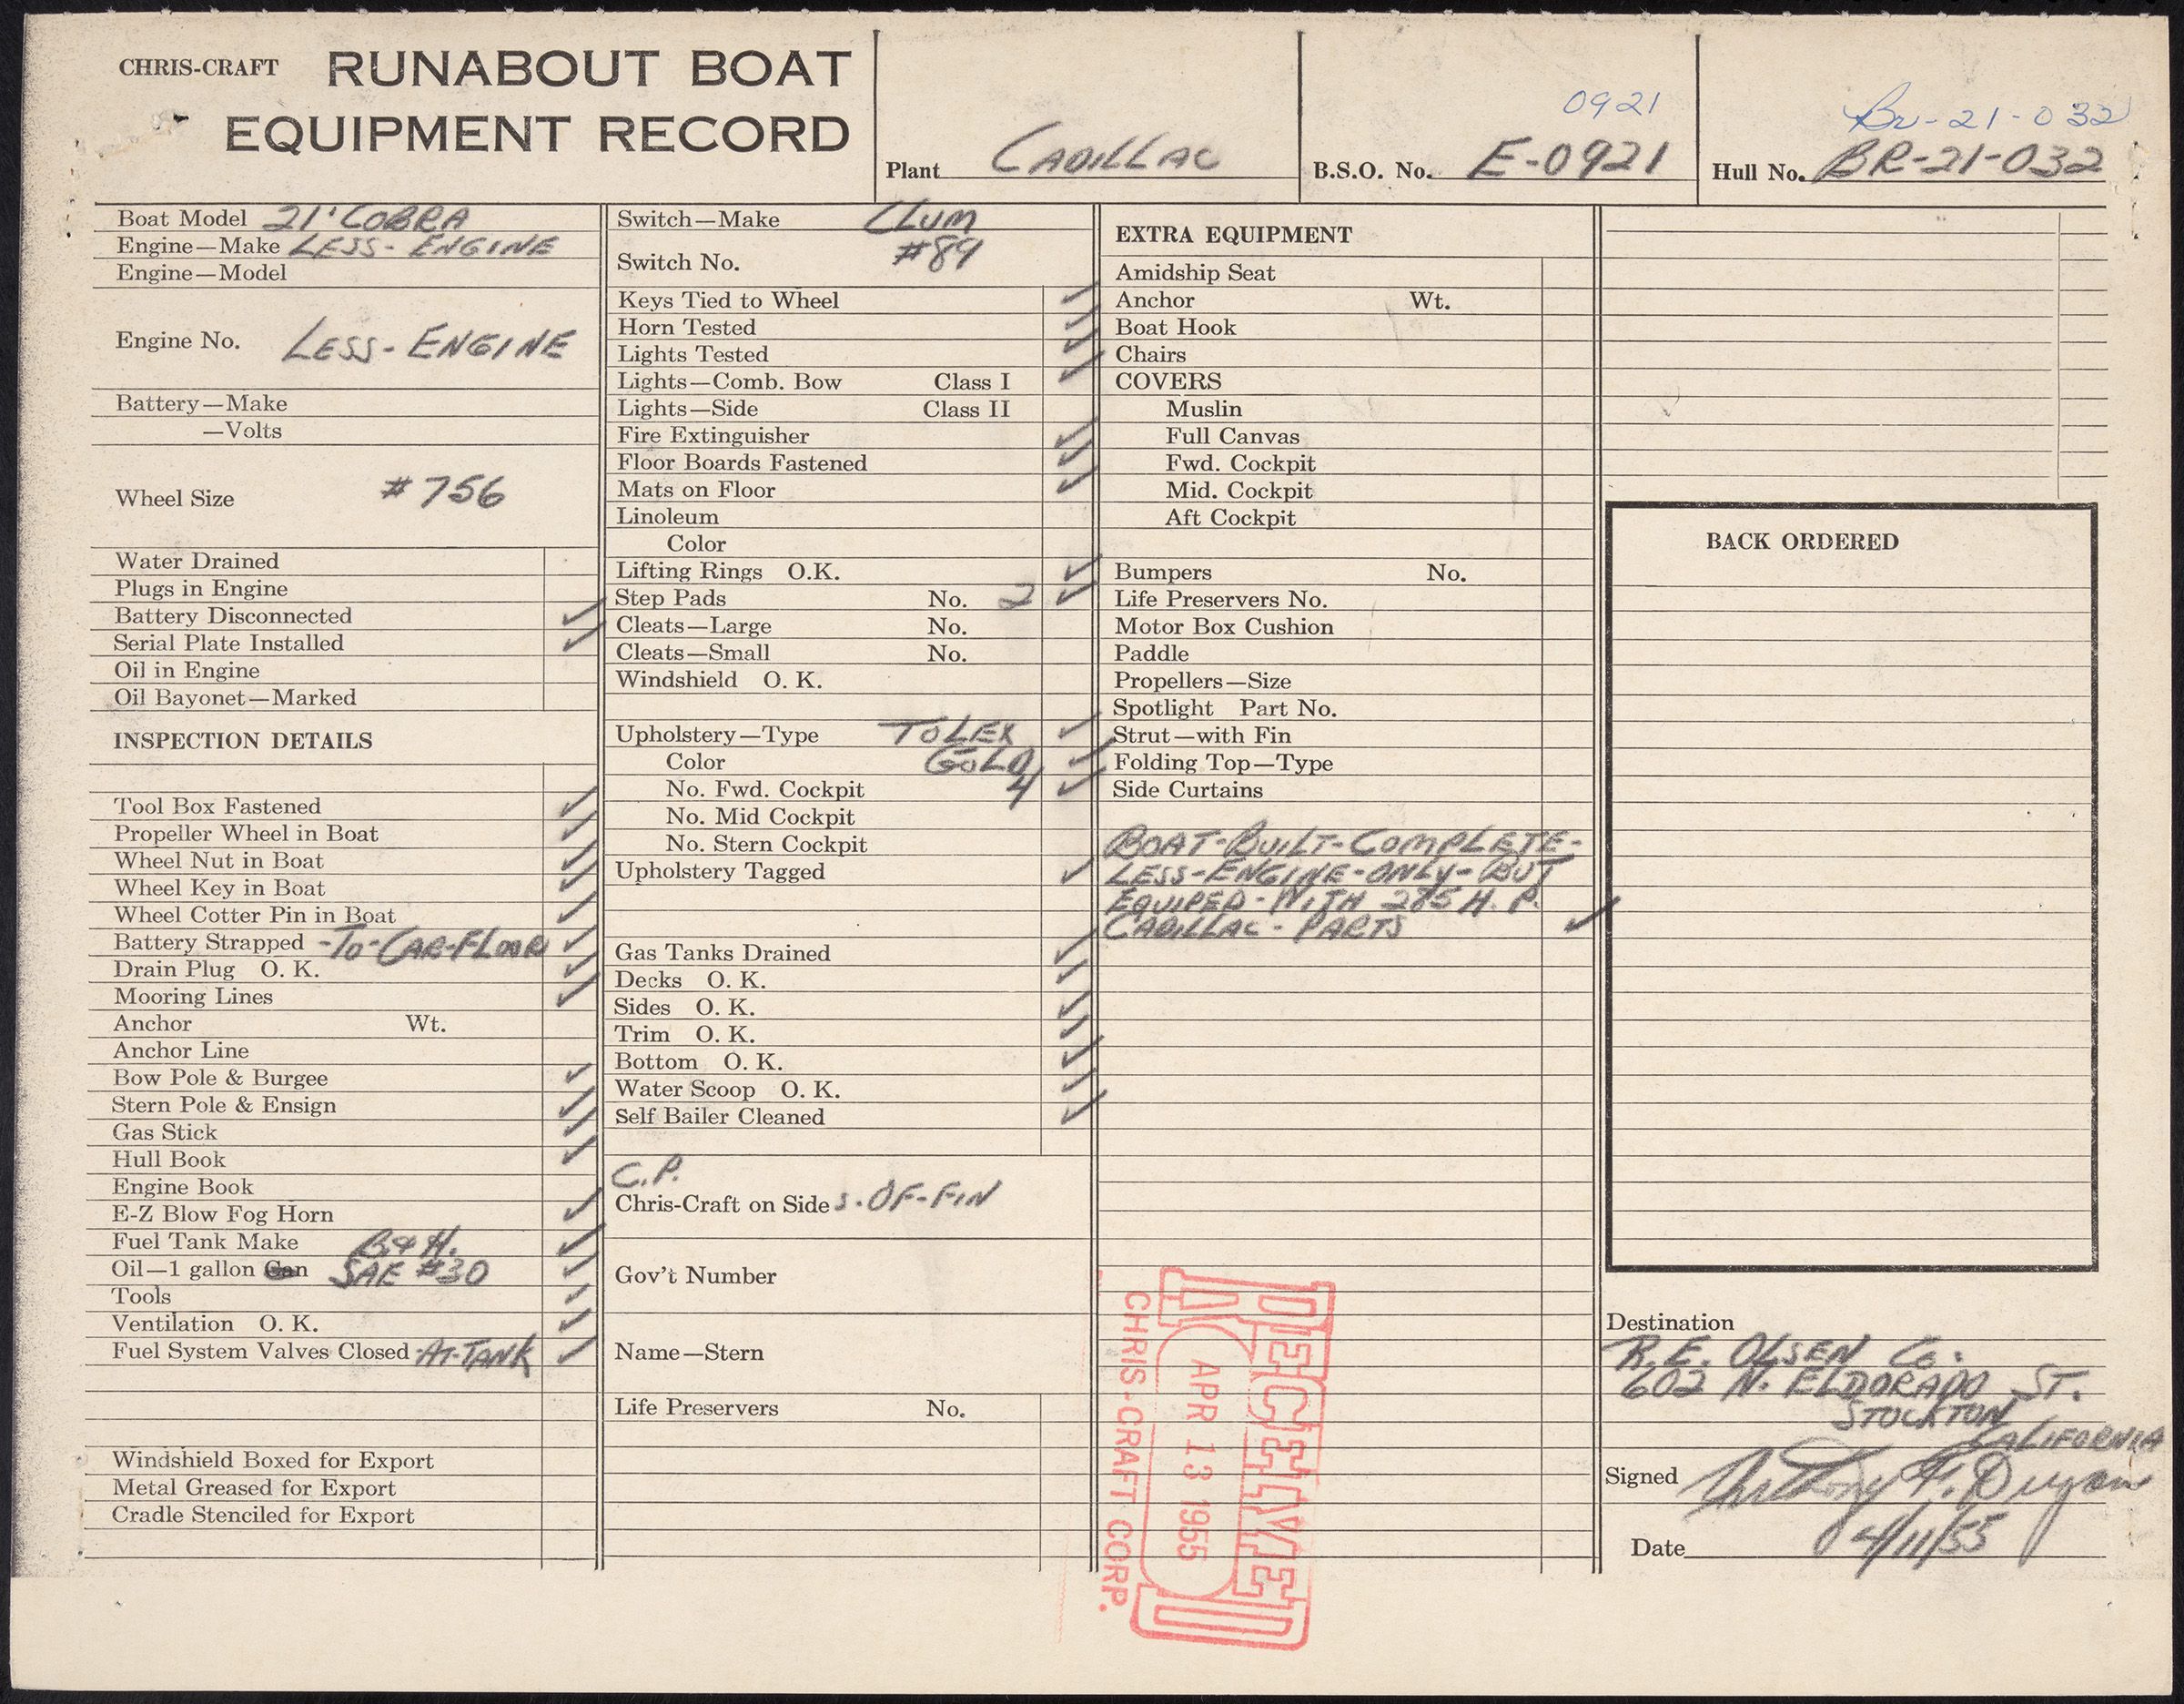 CHRIS-CRAFT RUNABOUT BOAT
EQUIPMENT RECORD
Plant CADILLAC
0921
B.S.O. No. E-0921
Br-21-032
Hull No. BR-21-032
Boat Model 21' COBRA
Engine—Make LESS-ENGINE
Engine—Model
Engine No. LESS-ENGINE
Battery—Make
—Volts
Wheel Size #756
Water Drained
Plugs in Engine
Battery Disconnected ✓
Serial Plate Installed ✓
Oil in Engine
Oil Bayonet—Marked
INSPECTION DETAILS
Tool Box Fastened ✓
Propeller Wheel in Boat ✓
Wheel Nut in Boat ✓
Wheel Key in Boat ✓
Wheel Cotter Pin in Boat ✓
Battery Strapped -TO-CAR-FLOOR ✓
Drain Plug O. K. ✓
Mooring Lines ✓
Anchor Wt.
Anchor Line
Bow Pole & Burgee ✓
Stern Pole & Ensign ✓
Gas Stick ✓
Hull Book ✓
Engine Book
E-Z Blow Fog Horn ✓
Fuel Tank Make B&H. ✓
Oil—1 gallon Can SAE #30 ✓
Tools ✓
Ventilation O. K. ✓
Fuel System Valves Closed-AT-TANK ✓
Windshield Boxed for Export
Metal Greased for Export
Cradle Stenciled for Export
Switch—Make CLUM
Switch No. #89
Keys Tied to Wheel ✓
Horn Tested ✓
Lights Tested ✓
Lights—Comb. Bow Class I ✓
Lights—Side Class II
Fire Extinguisher ✓
Floor Boards Fastened ✓
Mats on Floor ✓
Linoleum
Color
Lifting Rings O.K. ✓
Step Pads No. 2 ✓
Cleats—Large No.
Cleats—Small No.
Windshield O. K.
Upholstery—Type TOLEX ✓
Color GOLD ✓
No. Fwd. Cockpit 4 ✓
No. Mid Cockpit
No. Stern Cockpit
Upholstery Tagged ✓
Gas Tanks Drained ✓
Decks O. K. ✓
Sides O. K. ✓
Trim O. K. ✓
Bottom O. K. ✓
Water Scoop O. K. ✓
Self Bailer Cleaned ✓
C.P.
Chris-Craft on Side S-OF-FIN
Gov't Number
Name—Stern
Life Preservers No.
EXTRA EQUIPMENT
Amidship Seat
Anchor Wt.
Boat Hook
Chairs
COVERS
Muslin
Full Canvas
Fwd. Cockpit
Mid. Cockpit
Aft Cockpit
Bumpers No.
Life Preservers No.
Motor Box Cushion
Paddle
Propellers—Size
Spotlight Part No.
Strut—with Fin
Folding Top—Type
Side Curtains
BOAT-BUILT-COMPLETE-
LESS-ENGINE-ONLY-BUT
EQUIPED-WITH 285 H. P.
CADILLAC-PARTS ✓
RECEIVED
APR 13 1955
CHRIS-CRAFT CORP.
BACK ORDERED
Destination
R.E. OLSEN Co.
602 N. ELDORADO ST.
STOCKTON
CALIFORNIA
Signed Anthony F.
Date 4/11/55